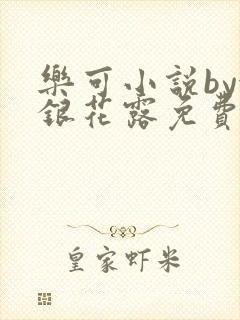 樂可小説by
銀花露免費
皇家虾米